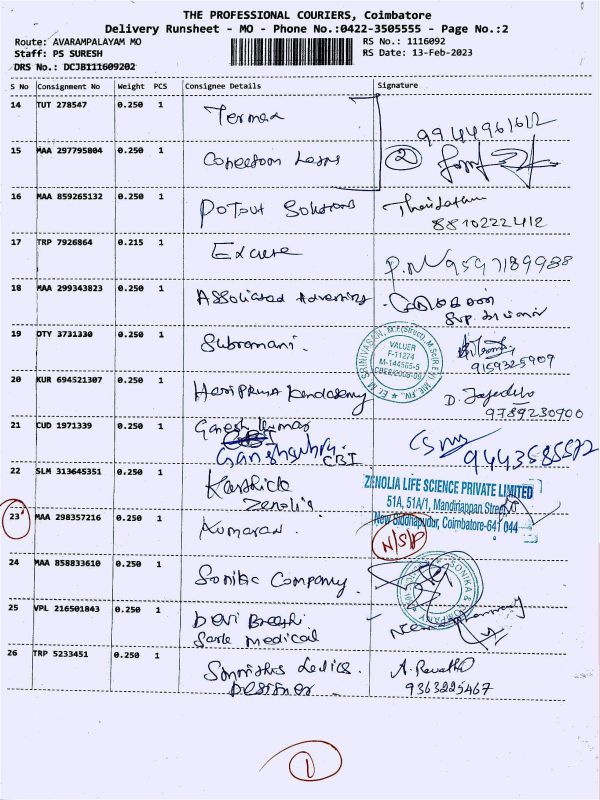 THE PROFESSIONAL COURIERS, Coimbatore
Delivery Runsheet - MO - Phone No.:0422-3505555 - Page No.:2
Route: AVARAMPALAYAM MO
RS No.: 1116092
Staff: PS SURESH
RS Date: 13-Feb-2023
DRS No.: DCJB111609202
S No Consignment No Weight PCS Consignee Details Signature
14 TUT 278547 0.250 1
9944961612
15 MAA 297795804 0.250 1 2
16 MAA 859265132 0.250 1 Solutions
8810222412
17 TRP 7926864 0.215 1 Excise
P.M 9597189988
18 MAA 299343823 0.250 1 Associated Advertising
19 DTY 3731330 0.250 1 Subramani.
VALUER
F-11274
9159325909
20 KUR 694521307 0.250 1 Hari Priya Kandasamy
9789230900
21 CUD 1971339 0.250 1 Ganesh Kumar
CBI
9443585572
22 SLM 313645351 0.250 1 Karthick
Zenolis
ZENOLIA LIFE SCIENCE PRIVATE LIMITED
51A, 51A/1, Mandiriappan Street,
New Siddhapudur, Coimbatore-641 044
23 MAA 298357216 0.250 1 Kumaran
N/S/P
24 MAA 858833610 0.250 1 Company
25 VPL 216501843 0.250 1 Devi
Medical
26 TRP 5233451 0.250 1
Designer
A. Revathi
9363225467
1